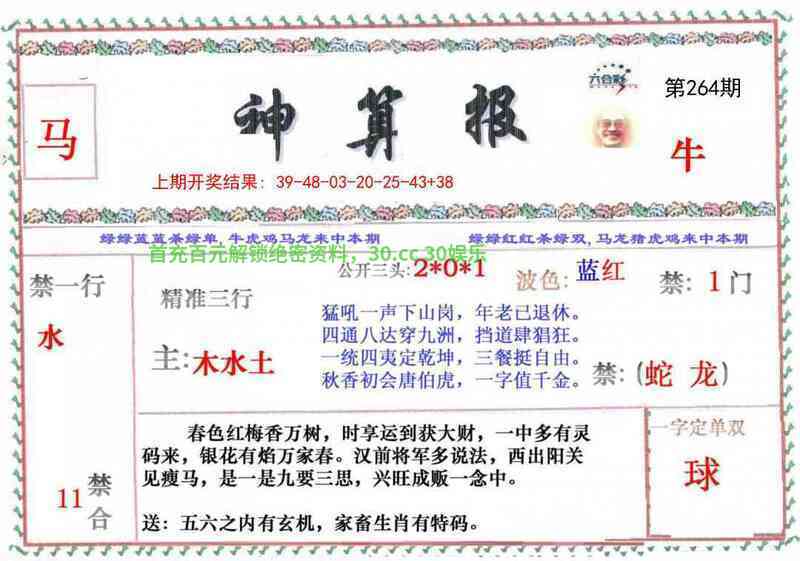 六合彩
第264期
马
神算报
牛
上期开奖结果：39-48-03-20-25-43+38
绿绿蓝蓝杀绿单,牛虎鸡马龙来中本期
绿绿红红杀绿双,马龙猪虎鸡来中本期
首充百元解锁绝密资料，30.cc 30娱乐
禁一行
水
11禁合
精准三行
主:木水土
公开三头:2*0*1
波色:蓝红
禁:1门
猛吼一声下山岗，年老已退休。
四通八达穿九洲，挡道肆猖狂。
一统四夷定乾坤，三餐挺自由。
秋香初会唐伯虎，一字值千金。
禁:(蛇 龙)
春色红梅香万树，时享运到获大财，一中多有灵
码来，银花有焰万家春。汉前将军多说法，西出阳关
见瘦马，是一是九要三思，兴旺成贩一念中。
送：五六之内有玄机，家畜生肖有特码。
一字定单双
球